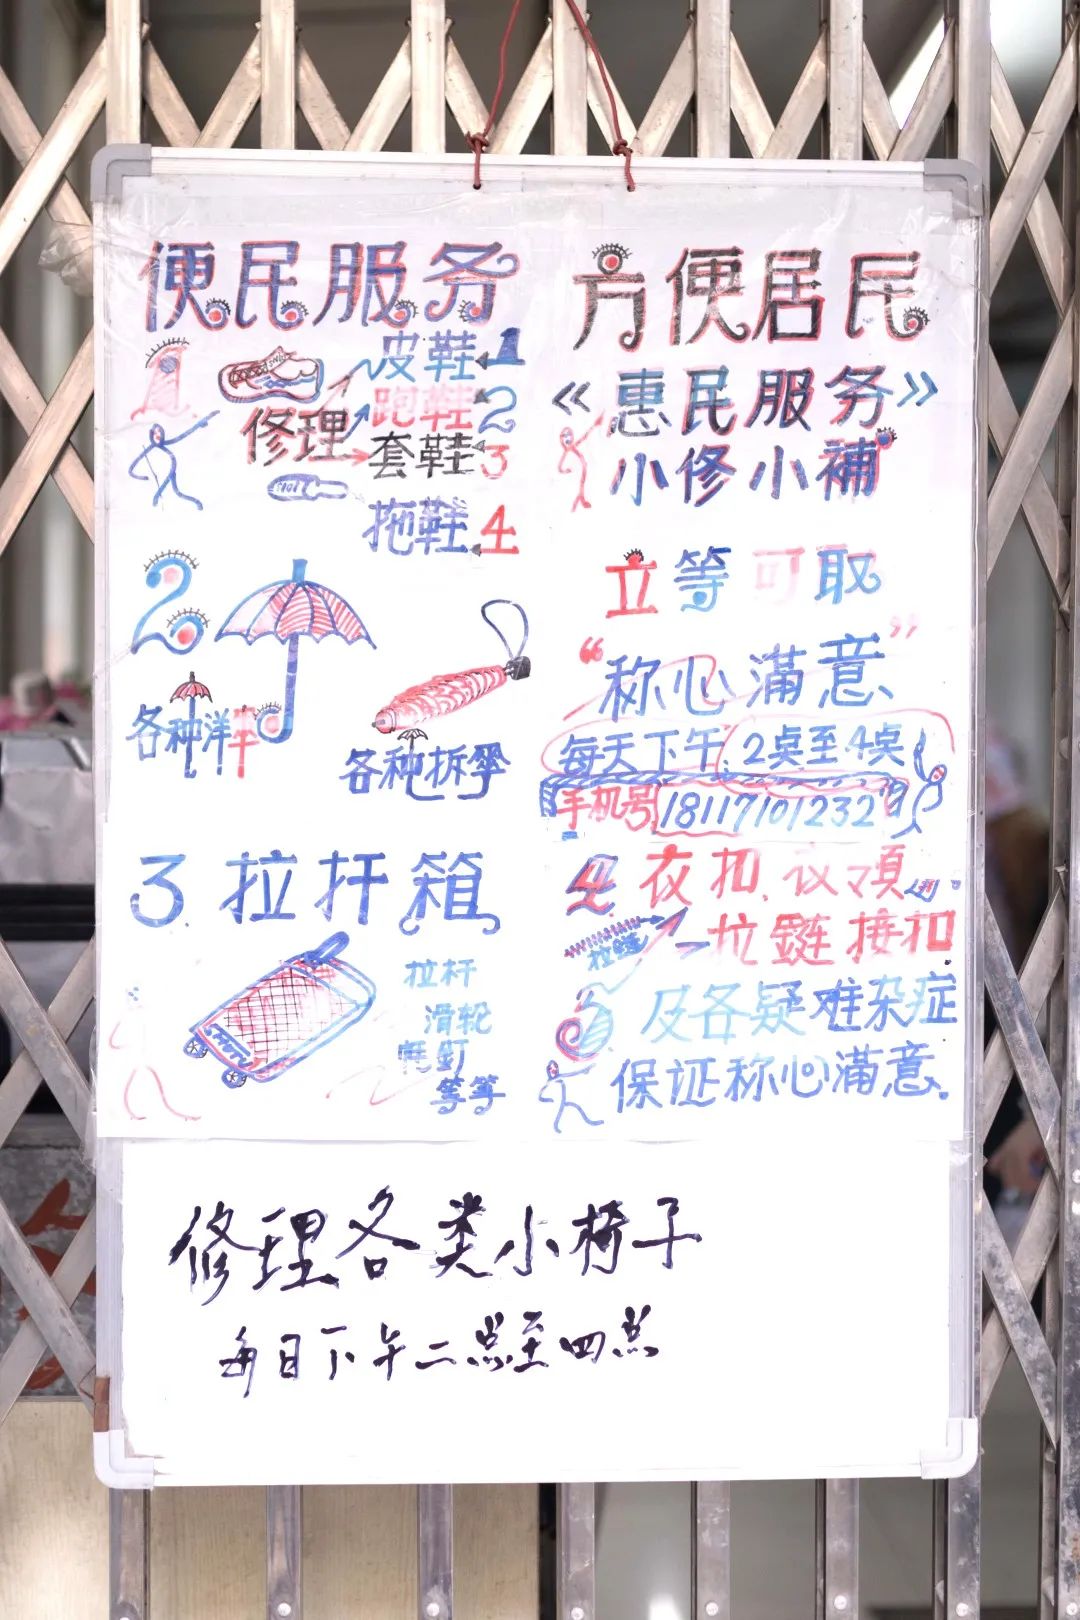 便民服务
修理
皮鞋 1
跑鞋 2
套鞋 3
拖鞋 4
2
各种洋伞
各种折伞
3. 拉杆箱
拉杆
滑轮
等等
方便居民
《惠民服务》
小修小補
立等可取
“称心满意”
每天下午2点至4点
手机号18117101232
4 衣扣、
拉链
拉链接扣
及各疑难杂症
保证称心满意.
修理各类小椅子
每日下午二点至四点